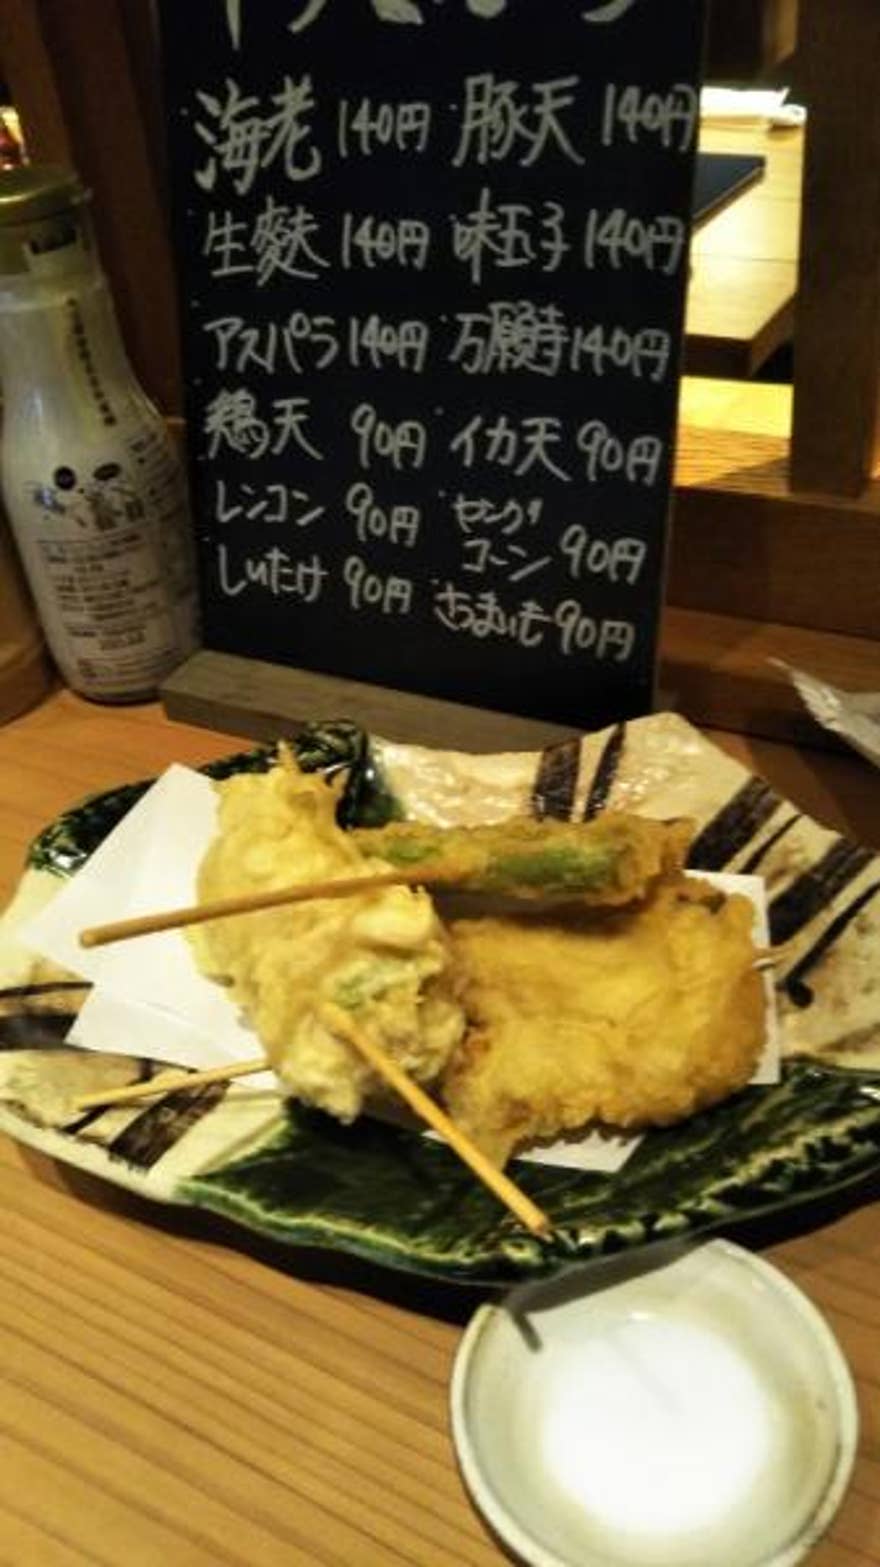 海老 140円 豚天 140円
生麩 140円 味玉子 140円
アスパラ 140円 万願寺 140円
鶏天 90円 イカ天 90円
レンコン 90円 ヤング
コーン 90円
しいたけ 90円 さつまいも 90円